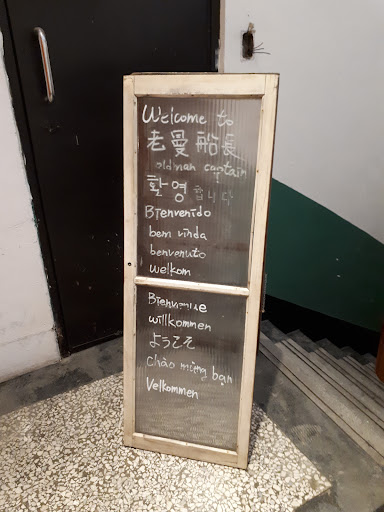 Welcome to
老曼船長
oldman captain
환영합니다
Bienvenido
bem vinda
benvenuto
welkom
Bienvenue
willkommen
ようこそ
chào mừng bạn
Velkommen